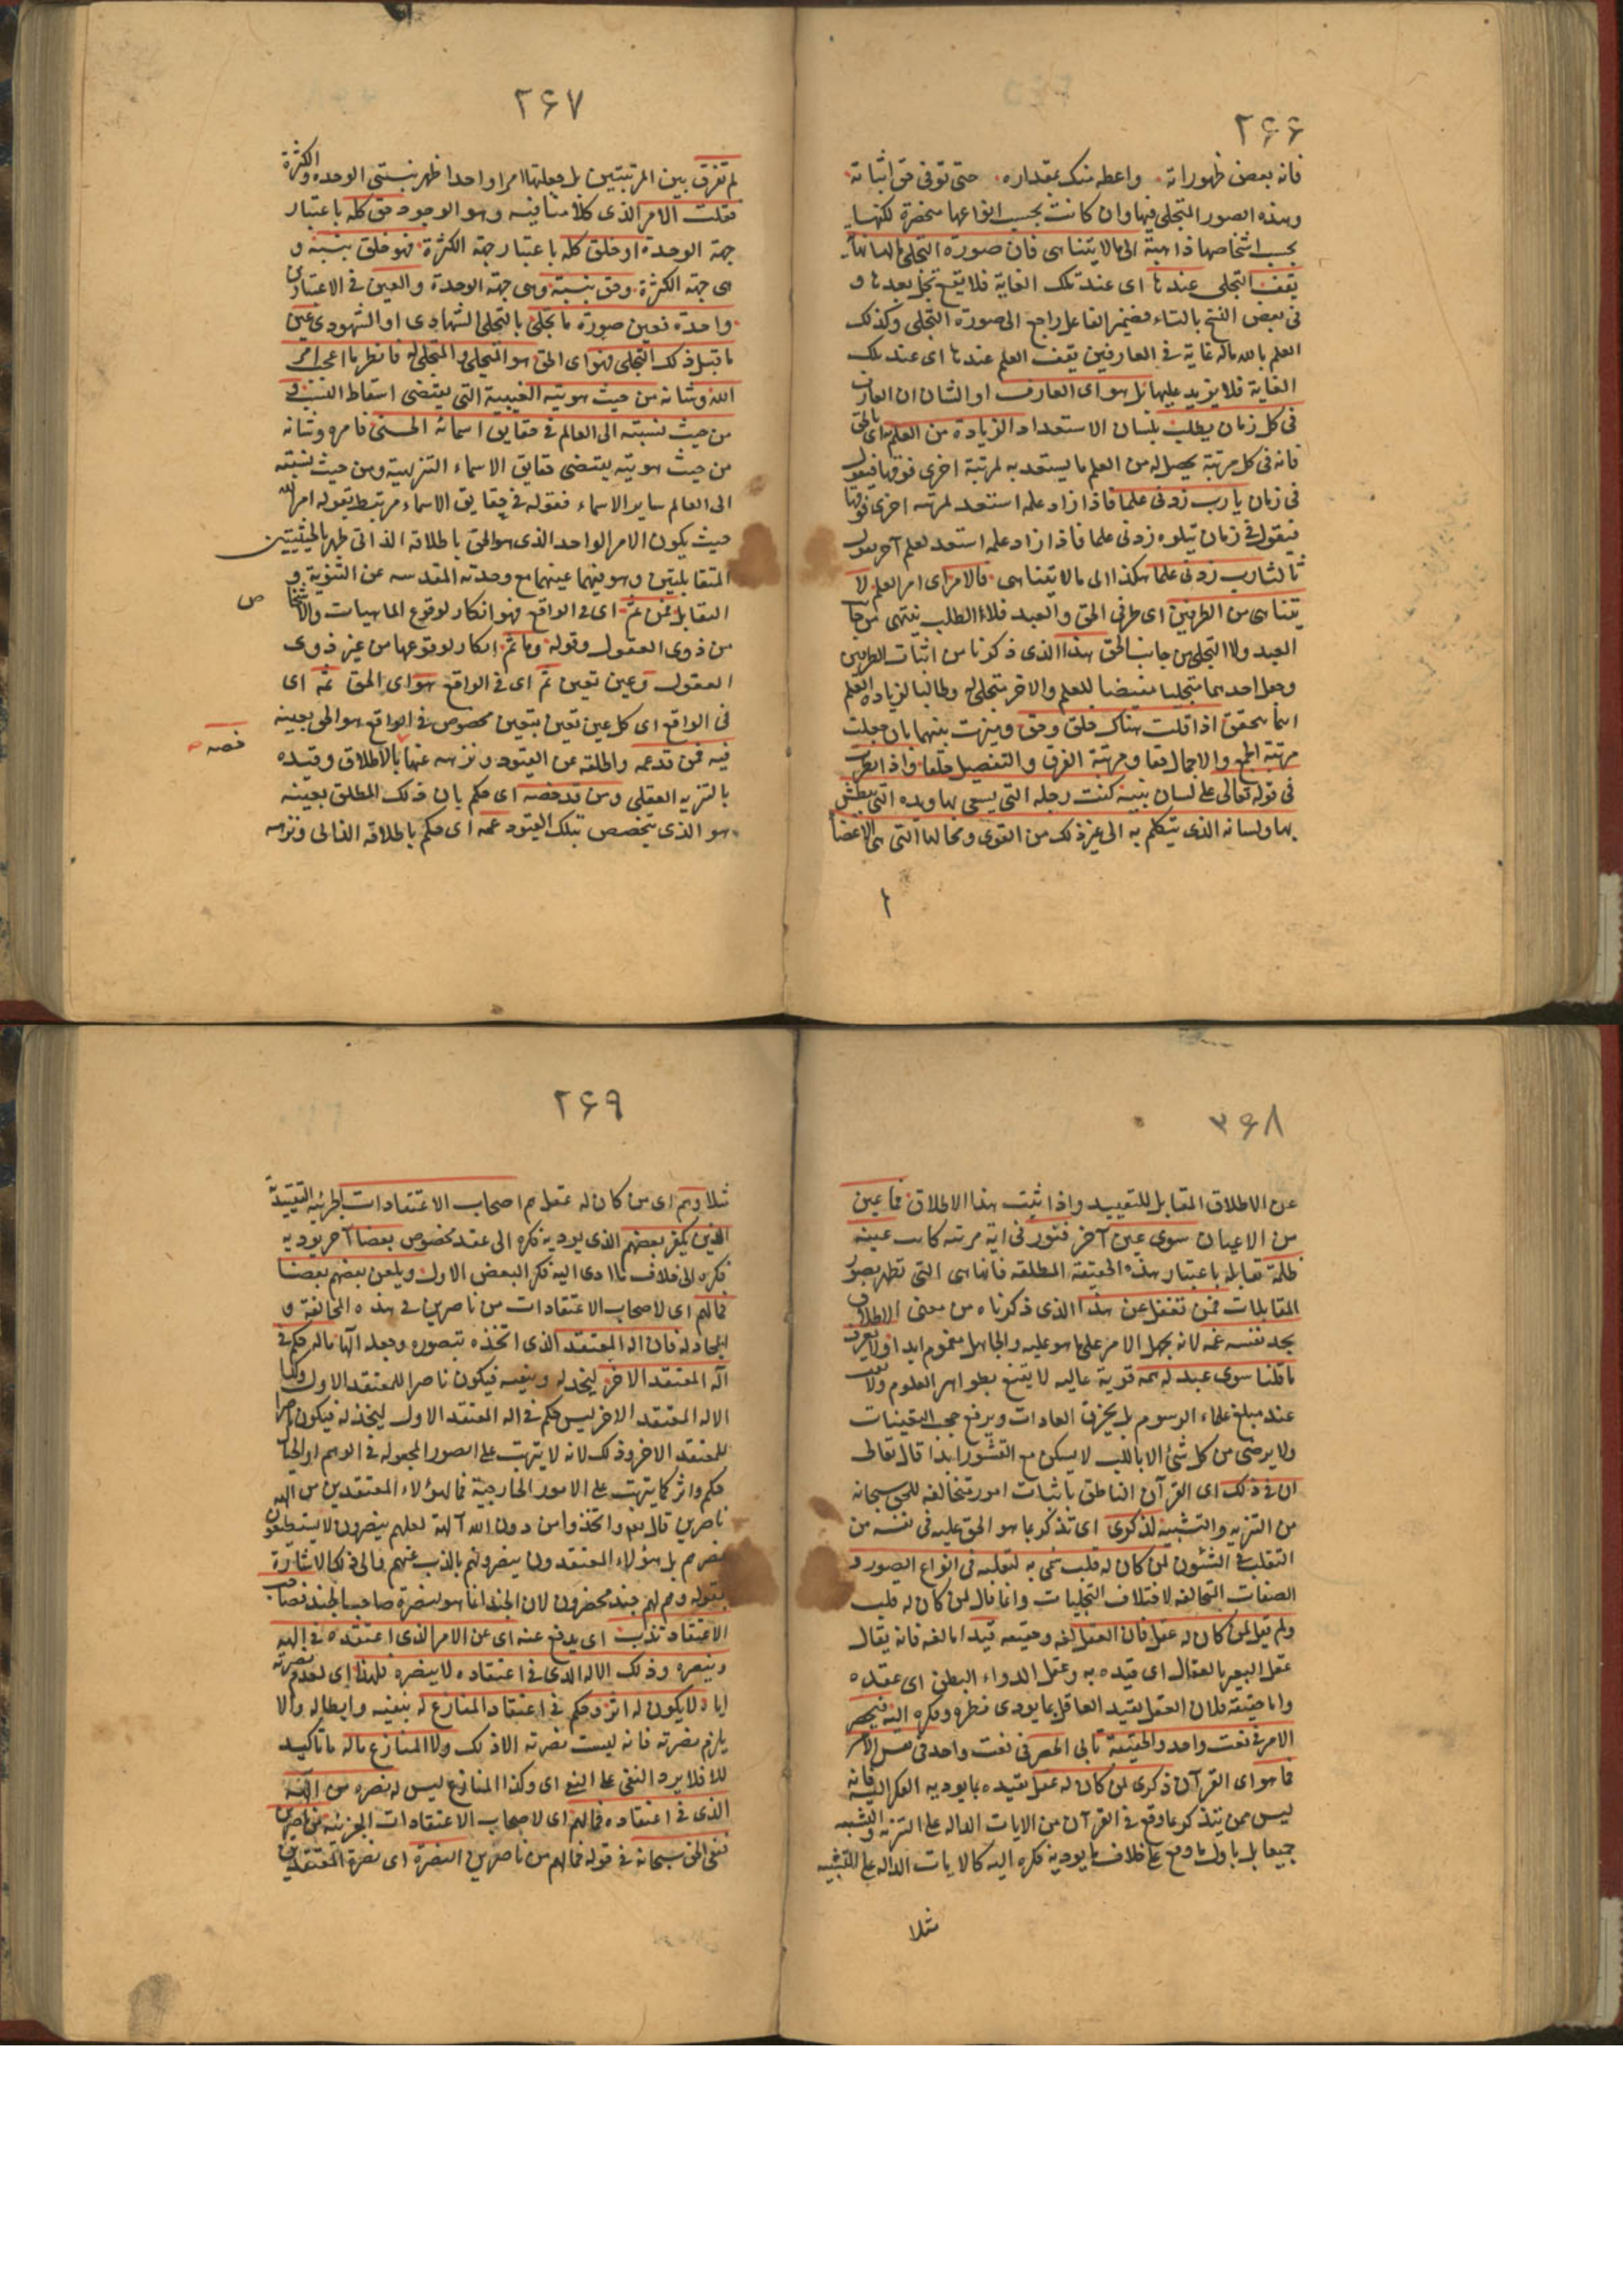 ٢۶۶
فانه بعض ظهوراته واعطه منك بمقداره حتى توفى حق اثباته
وهذه الصور المتجلى فيها وان كانت بحسب انواعها منحصرة لكنها
بحسب اشخاصها ذاهبة الى ما لا يتناهى فان صورة التجلى مالها نهاية
يقف التجلى عندها اى عند تلك الغاية فلا يقع تجل بعدها و
فى بعض النسخ بالتاء فضمير الفاعل راجع الى صورة التجلى وكذلك
العلم بالله ماله غاية فى العارفين يقف العلم عندها اى عند تلك
الغاية فلا يزيد عليها بل هو اى العارف او الشان ان العارف
فى كل زمان يطلب بلسان الاستعداد الزيادة من العلم اى بالحق
فانه فى كل مرتبة يحصل له من العلم ما يستعد به لمرتبة اخرى فوقها فيقول
فى زمان يا رب زدنى علما فاذا زاد علمه استعد لمرتبة اخرى فوقها
فيقول فى زمان يتلوه زدنى علما فاذا زاد علمه استعد لعلم آخر يقول
ثالثا رب زدنى علما هكذا الى ما لا يتناهى فالامر اى امر العلم لا
يتناهى من الطرفين اى طرفى الحق والعبد فلا الطلب ينتهى من جانب
العبد ولا التجلى من جانب الحق هذا الذى ذكرنا من اثبات الطرفين
وجعل احدهما متجليا مفيضا للعلم والاخر متجلى له وطالبا لزيادة العلم
انما يتحقق اذا قلت هناك خلق وحق وميزت بينهما بان جعلت
مرتبة الجمع والاجمال حقا ومرتبة الفرق والتفصيل خلقا واذا نظرت
فى قوله تعالى على لسان نبيه كنت رجله التى يسعى بها ويده التى يبطش
بها ولسانه الذى يتكلم به الى غير ذلك من القوى ومحالها التى هى الاعضاء
٢۶٧
لم تفرق بين المرتبتين بل جعلتهما امرا واحدا ظهر بنسبتى الوحدة والكثرة
فقلت الامر الذى كلامنا فيه وهو الوجود حق كله باعتبار
جهة الوحدة او خلق كله باعتبار جهة الكثرة فهو خلق بنسبة و
هى جهة الكثرة وحق بنسبة وهى جهة الوحدة والعين فى الاعتبارين
واحدة فعين صورة ما تجلى بالتجلى الشهادى او الشهودى عين
ما قبل ذلك التجلى فهو اى الحق هو المتجلى والمتجلى له فانظر ما اعجب امر
الله وشانه من حيث هويته الغيبية التى يقتضى اسقاط النسب و
من حيث نسبته الى العالم فى حقايق اسمائه الحسنى فامره وشانه
من حيث هويته يقتضى حقايق الاسماء التنزيهية ومن حيث نسبته
الى العالم ساير الاسماء فقوله فى حقايق الاسماء مرتبط بقوله امر الله
حيث يكون الامر الواحد الذى هو الحق باطلاقه الذاتى ظهر بالحيثيتين
المتقابلتين وهو فيهما عينهما مع وحدته المقدسه عن التثنوية و
التقابل فمن ثم اى فى الواقع فهو انكار لوقوع الماهيات والاشخاص
من ذوى العقول وقوله وما ثم انكار لوقوعها من غير ذوى
العقول وعين تعين ثم اى فى الواقع هو اى الحق ثمه اى
فى الواقع اى كل عين تعين بتعين مخصوص فى الواقع هو الحق بعينه
فيه فمن قد عمه واطلقه عن القيود ونزهه عنها بالاطلاق وقيده
خصه
بالتنزيه العقلى ومن قد خصه اى حكم بان ذلك المطلق بعينه
هو الذى يتخصص بتلك القيود عمه اى حكم باطلاقه الذاتى ونزهه
٣۶٨
عن الاطلاق المقابل للتقييد واذا ثبت هذا الاطلاق فما عين
من الاعيان سوى عين آخر فنور فى اية مرتبة كانت عينه
ظلمة تقابله باعتبار هذه الحقيقة المطلقة فانها هى التى تظهر بصور
المقابلات فمن تغفل عن هذا الذى ذكرناه من معنى الاطلاق
يجد نفسه غمه لانه يجهل الامر على ما هو عليه والجاهل مغموم ابدا ولا يعرف
ما قلنا سوى عبد له همة قوية عاليه لا يقنع بظواهر العلوم ولا يقف
عند مبلغ علماء الرسوم بل يخرق العادات ويرفع حجب اليقينات
ولا يرضى من كل شئ الا باللب لا يسكن مع القشور ابدا قال تعالى
ان فى ذلك اى القرآن الناطق باثبات امور متخالفة للحق سبحانه
من التنزيه والتشبيه لذكرى اى تذكر بما هو الحق عليه فى نفسه من
التقلب فى الشئون لمن كان له قلب سمى به لتقلبه فى انواع الصور و
الصفات المتخالفة لاختلاف التجليات وانما قال لمن كان له قلب
ولم يقل لمن كان له عقل فان العقل لغة وحقيقة قيد اما لغة فانه يقال
عقل البعير بالعقال اى قيده به وعقل الدواء البطن اى عقده
واما حقيقة فلان العقل يقيد العاقل بما يودى نظره وفكره اليه فيحصر
الامر فى نعت واحد والحقيقة تابى الحصر فى نعت واحد فى نفس الامر
فما هو اى القرآن ذكرى لمن كان له عقل يقيده بما يوديه الفكر اليه فانه
ليس ممن يتذكر بما وقع فى القرآن من الايات الداله على التنزيه والتشبيه
جميعا بل ياول ما وقع على خلاف ما يوديه فكره اليه كالايات الداله على التشبيه
مثلا
٢۶٩
مثلا وهم اى من كان له عقل هم اصحاب الاعتقادات الجزئية التقييدية
الذين يكفر بعضهم الذى يوديه فكره الى عقد مخصوص بعضا آخر يوديه
فكره الى خلاف ما ادى اليه فكر البعض الاول ويلعن بعضهم بعضا
فما لهم اى لاصحاب الاعتقادات من ناصرين فى هذه المخالفة و
المجادلة فان اله المعتقد الذى اتخذه بتصوره وجعله آلها ماله حكم فى
اله المعتقد الاخر ليخذله وينفيه فيكون ناصرا للمعتقد الاول وكذا
الاله المعتقد الاخر ليس حكم فى اله المعتقد الاول ليخذله فيكون ناصرا
للمعتقد الاخر وذلك لانه لا يترتب على الصور المجعوله فى الوهم او الخيال
حكم واثر كما يترتب على الامور الخارجية فما لهؤلاء المعتقدين من الهه
ناصرين قال تعالى واتخذوا من دون الله آلهة لعلهم ينصرون لا يستطيعون
نصرهم بل هؤلاء المعتقدون ينصرونهم بالذب عنهم فالى ذلك الاشارة
بقوله وهم لهم جند محضرون لان الجند انما هو لنصرة صاحب الجند فصاحب
الاعتقاد يذب اى يدفع عنه اى عن الامر الذى اعتقده فى الهه
وينصره وذلك الاله الذى فى اعتقاده لا ينصره فلهذا اى لعدم نصرته
اياه لا يكون له اثر وحكم فى اعتقاد المنازع له بنفيه وابطاله والا
يلزم نصرته فانه ليست نصرته الا ذلك ولا المنازع ماله ما تاكيد
للا فلا يرد النفى على النفى اى وكذا المنازع ليس له نصره من الهه
الذى فى اعتقاده فما لهم اى لاصحاب الاعتقادات الجزئية من ناصرين
فنفى الحق سبحانه فى قوله فما لهم من ناصرين النصرة اى نصرة المعتقدين